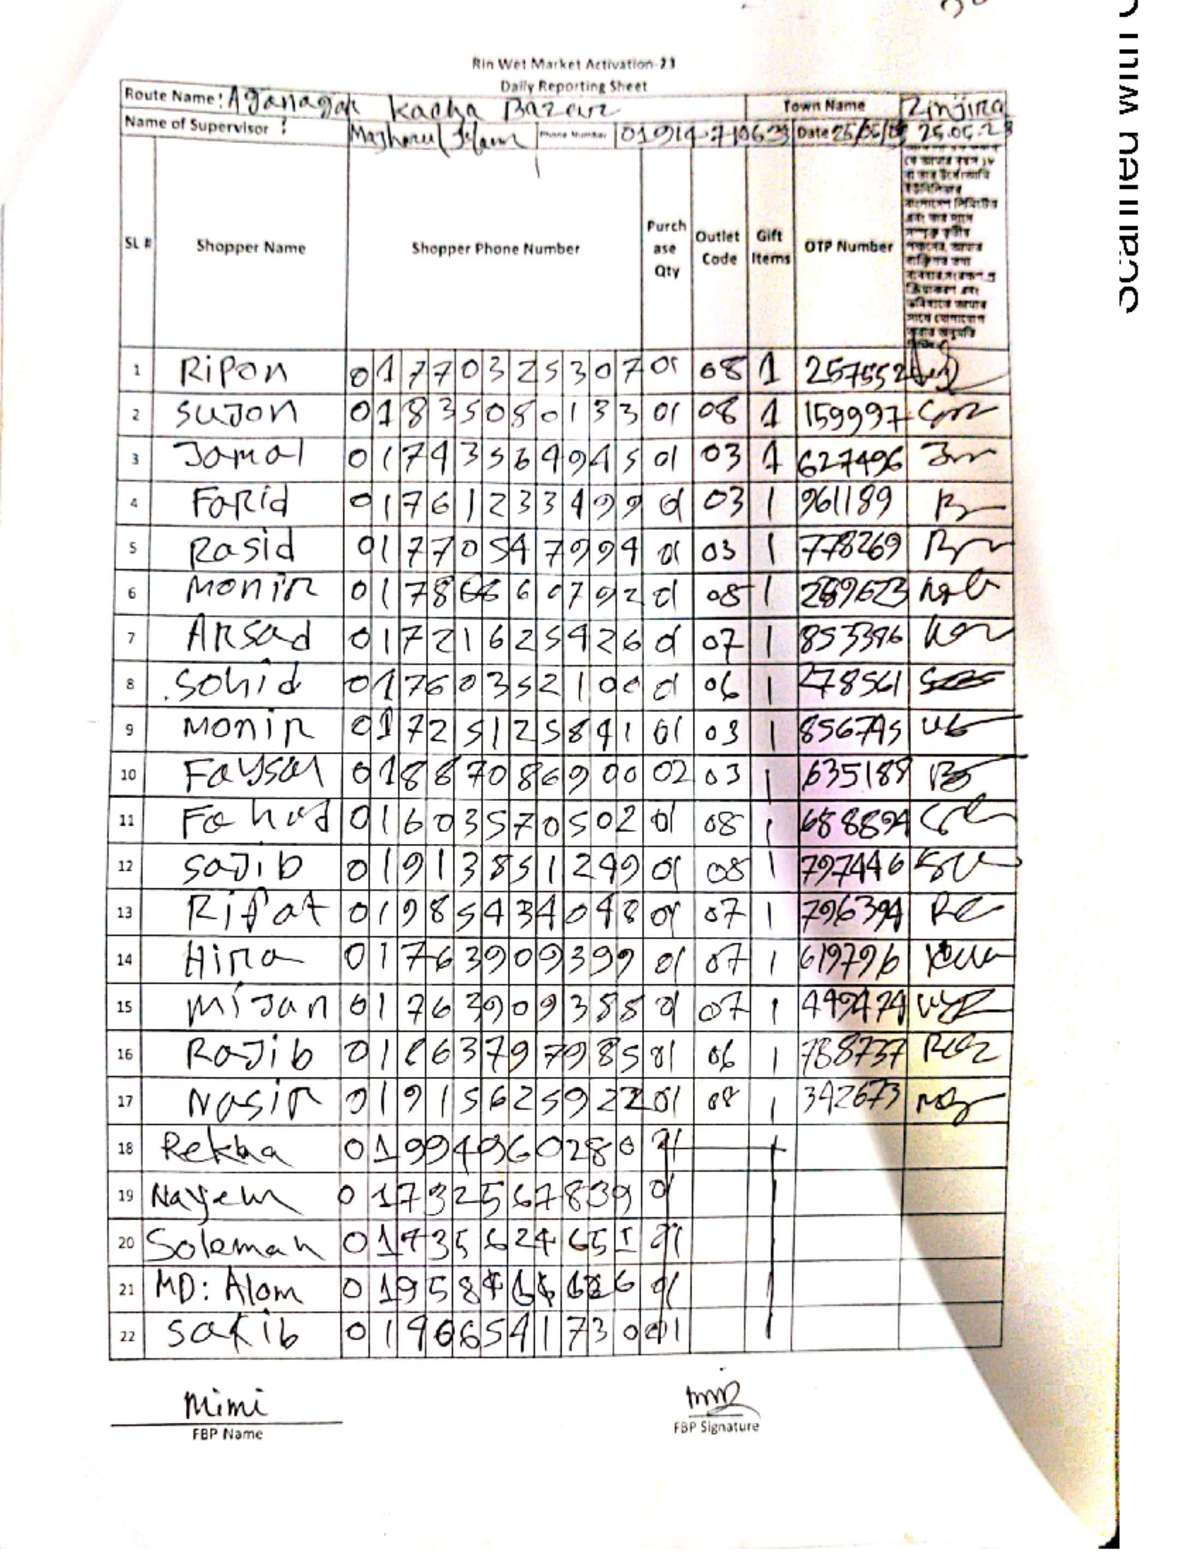 Rin Wet Market Activation-23
Daily Reporting Sheet
Route Name: Aganagar Kacha Bazar Town Name Zinjira
Name of Supervisor : Mazharul Islam Phone Number Date 25/05/23 25.05.23
SL # Shopper Name Shopper Phone Number Purchase Qty Outlet Code Gift Items OTP Number
1 Ripon 01770325307 01 08 1 257552
2 Sujon 01835080133 01 08 1 159997
3 Jamal 01743564945 01 03 1 627496
4 Farid 01761233499 01 03 1 961189
5 Rasid 01770547994 01 03 1 778269
6 Monir 01 08 1
7 Arsad 01721625426 01 07 1 853396
8 Sohid 01760352100 01 06 1 278561
9 Monir 01725125841 01 03 1 856745
10 Faysal 01887086900 02 03 1 635189
11 Fahad 01603570502 01 08 1 688894
12 Sajib 01913851249 01 08 1 797446
13 Rifat 01985434048 01 07 1 796394
14 Hira 01763909399 01 07 1 619796
15 Mijan 01763909388 01 07 1 449474
16 Rajib 01863797985 01 06 1 788737
17 Nasir 01915625922 01 08 1 342673
18 Rekha 01994960280 01
19 Nayem 01732567839 01
20 Soleman 01735624651 01
21 MD: Alom 01
22 Sakib 01906541730 01
Mimi
FBP Name FBP Signature